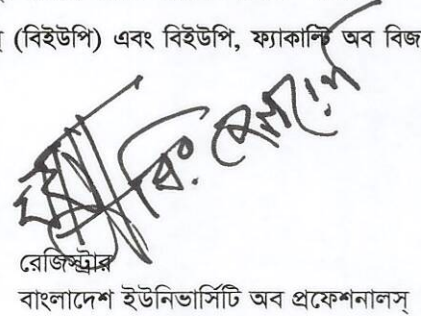 (বিইউপি) এবং বিইউপি, ফ্যাকাল্টি অব বিজ
রেজিস্ট্রার
বাংলাদেশ ইউনিভার্সিটি অব প্রফেশনালস্